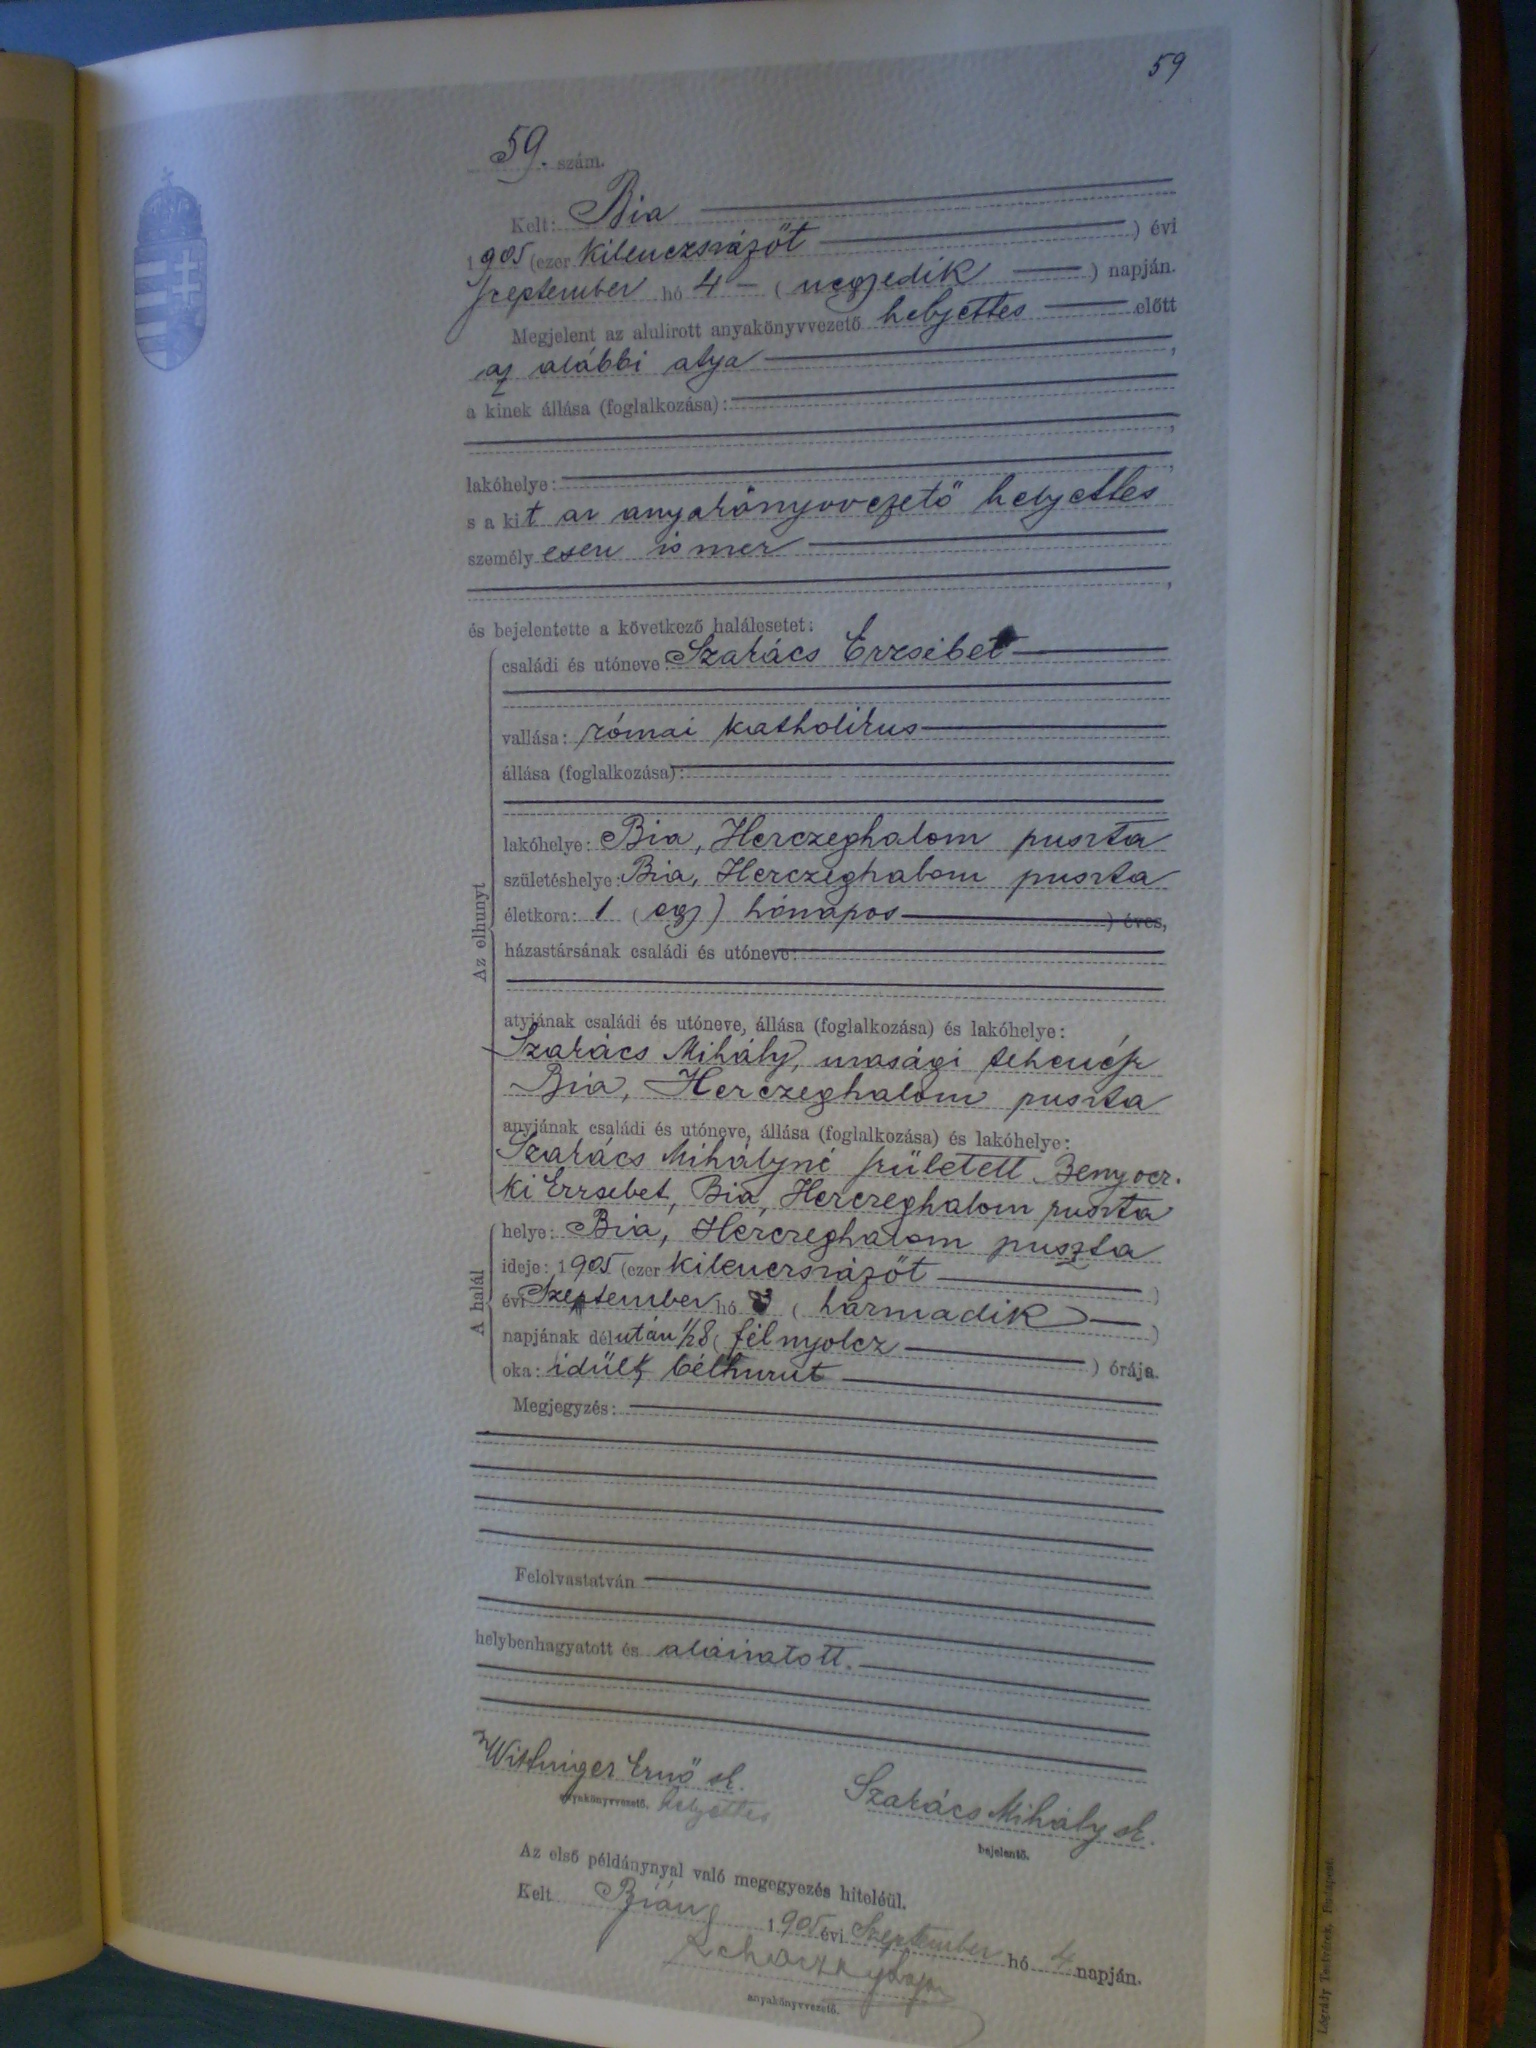 59
59. szám.
Kelt: Bia
1905 (ezer kilenczszázöt ) évi
szeptember hó 4 ( negyedik ) napján.
Megjelent az alulirott anyakönyvvezető helyettes előtt
az alábbi atya ,
a kinek állása (foglalkozása):
,
lakóhelye: ,
s a kit az anyakönyvvezető helyettes
személyesen ismer
,
és bejelentette a következő halálesetet:
Az elhunyt
családi és utóneve Szakács Erzsébet
vallása: római katholikus
állása (foglalkozása):
lakóhelye: Bia, Herczeghalom puszta
születéshelye: Bia, Herczeghalom puszta
életkora: 1 (egy) hónapos ) éves,
házastársának családi és utóneve:
atyjának családi és utóneve, állása (foglalkozása) és lakóhelye:
Szakács Mihály, urasági tehenész
Bia, Herczeghalom puszta
anyjának családi és utóneve, állása (foglalkozása) és lakóhelye:
Szakács Mihályné született Benyocz-
ki Erzsebet, Bia, Herczeghalom puszta
A halál
helye: Bia, Herczeghalom puszta
ideje: 1905 (ezer kilenczszázöt )
évi Szeptember hó 3 ( harmadik )
napjának délután 1/28 ( fél nyolcz ) órája.
oka: idült bélhurut
Megjegyzés:
Felolvastatván
helybenhagyatott és aláiratott.
Wittinger Ernő sk.
anyakönyvvezető. helyettes
Szakács Mihály sk.
bejelentő.
Az első példánynyal való megegyezés hiteléül.
Kelt Bián, 1905 évi Szeptember hó 4 napján.
anyakönyvvezető.
Légrády Testvérek, Budapest.